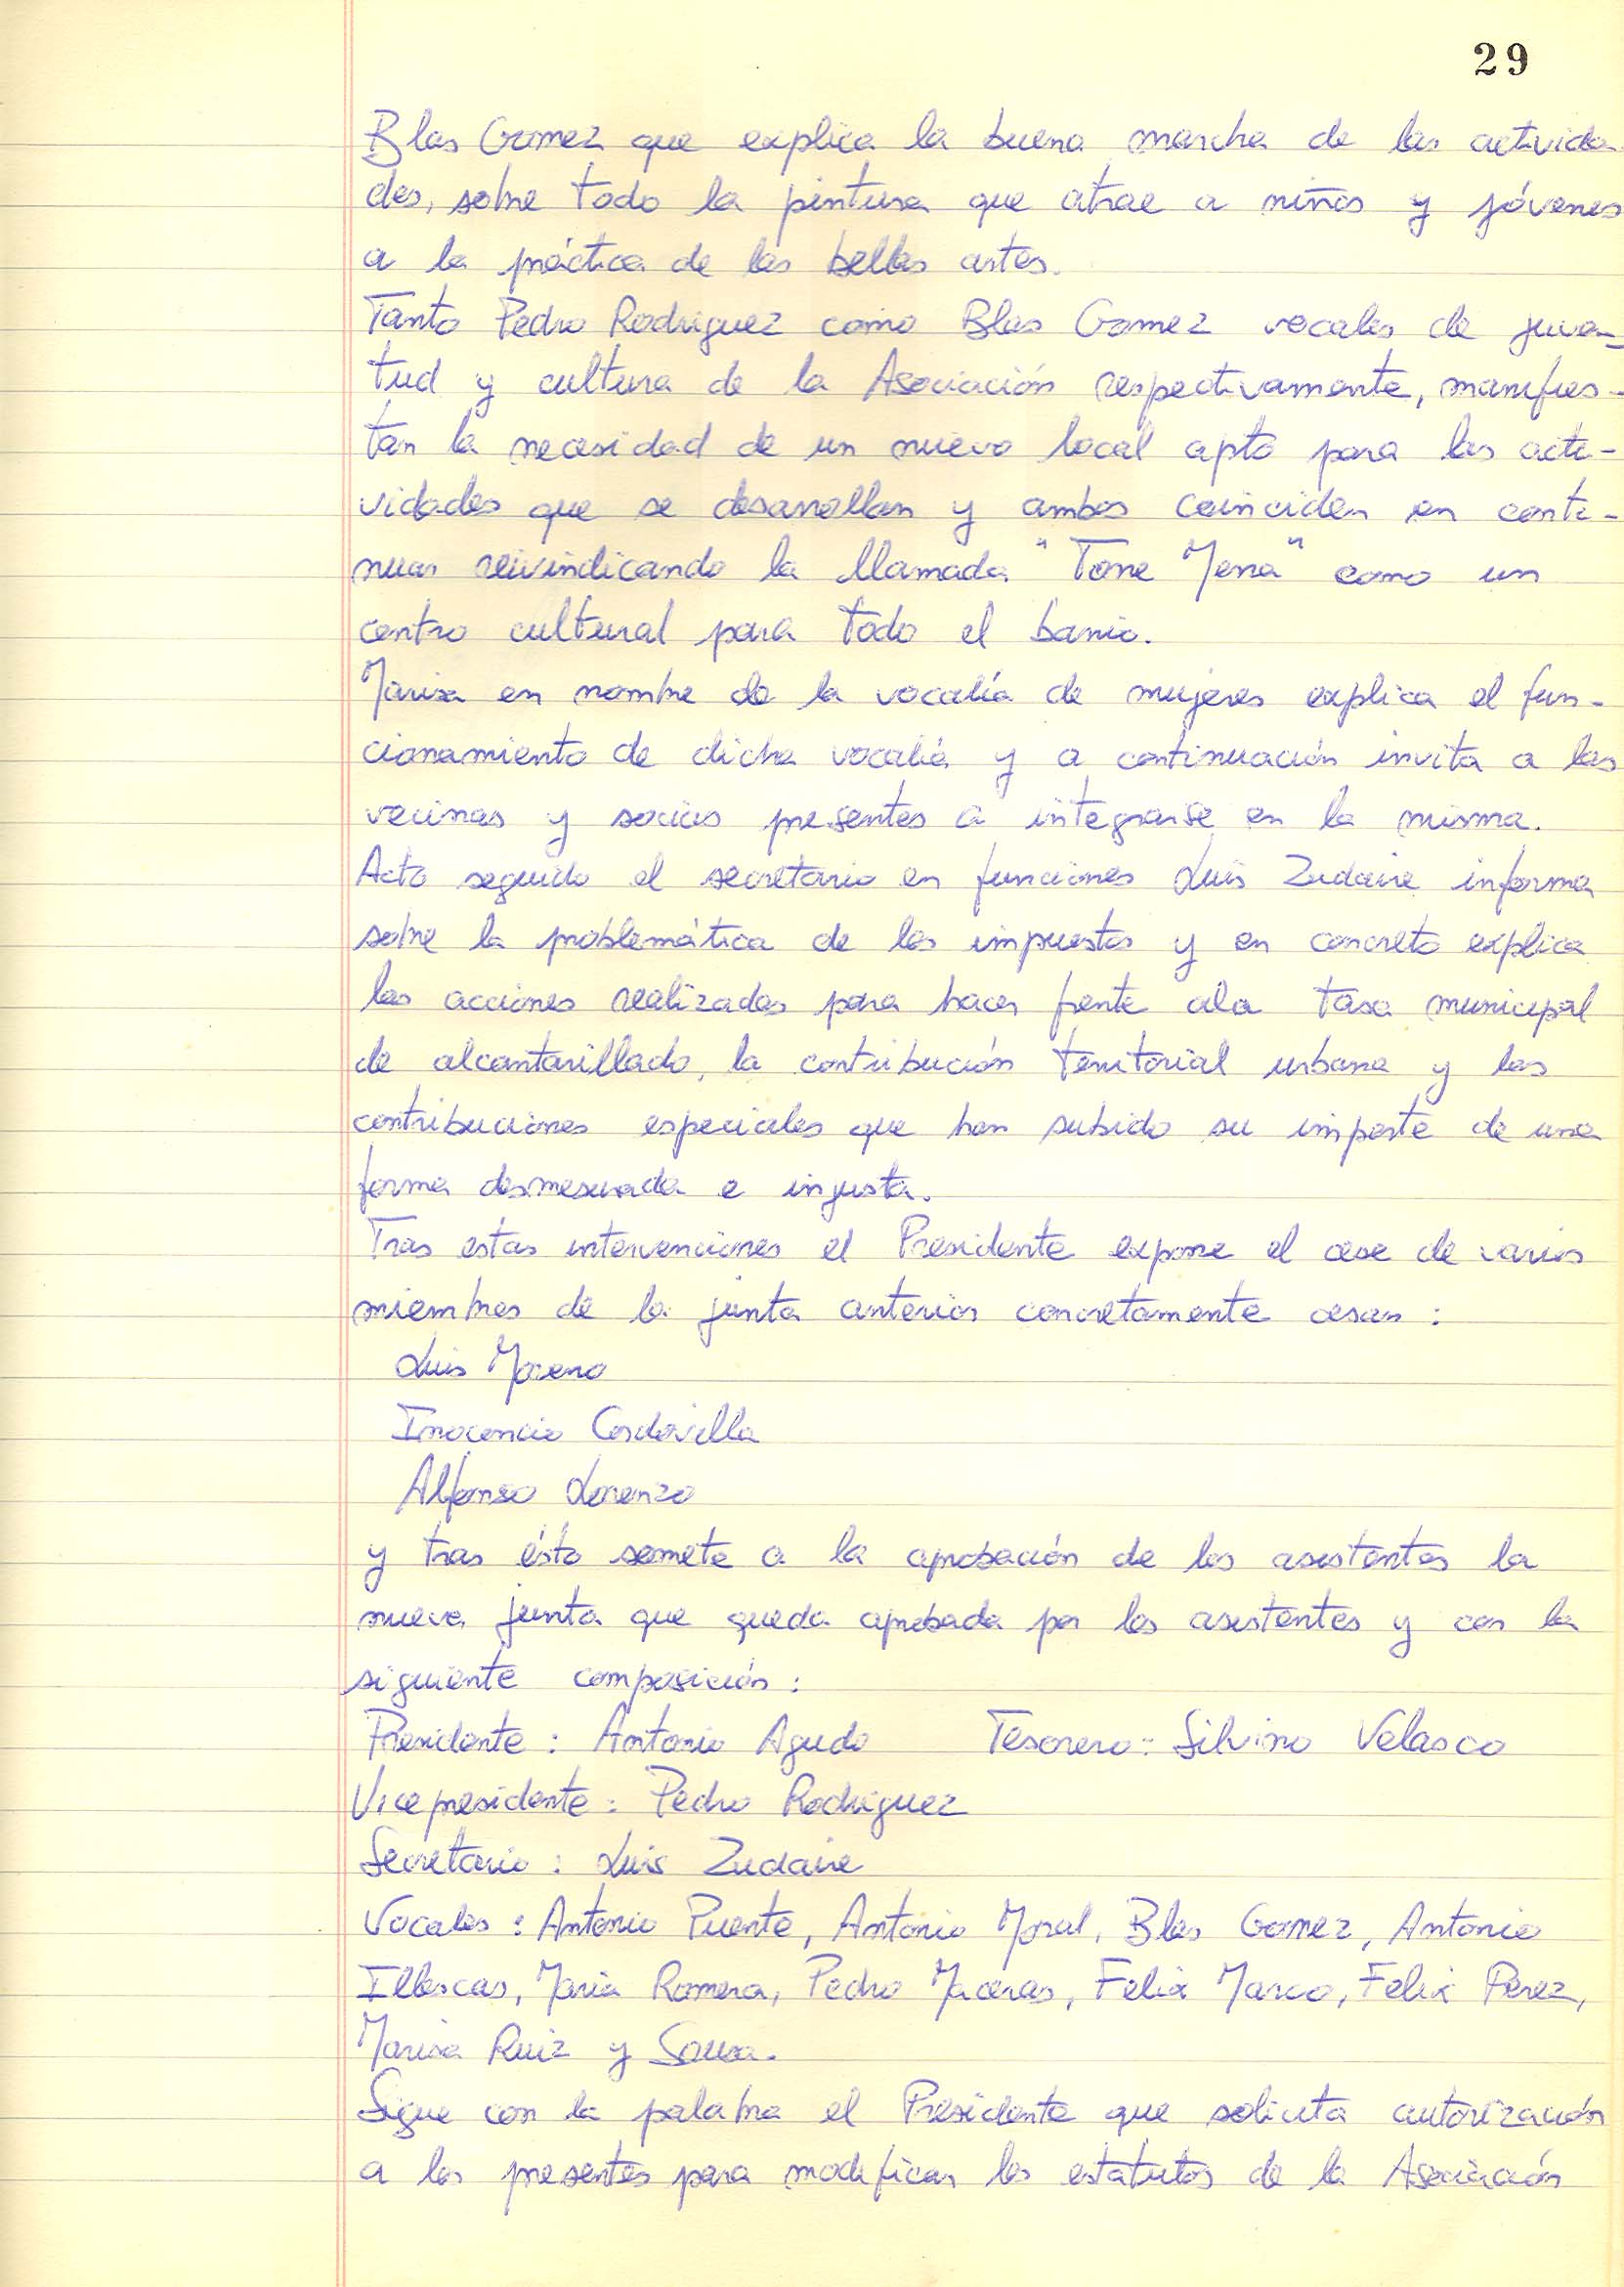 29
Blas Gomez que explica la buena marcha de las activida
des, sobre todo la pintura que atrae a niños y jóvenes
a la práctica de las bellas artes.
Tanto Pedro Rodriguez como Blas Gomez vocales de juven-
tud y cultura de la Asociación respectivamente, manifies-
tan la necesidad de un nuevo local apto para las acti-
vidades que se desarrollan y ambos coinciden en conti-
nuar reivindicando la llamada "Torre Mena" como un
centro cultural para todo el barrio.
Marisa en nombre de la vocalía de mujeres explica el fun-
cionamiento de dicha vocalía y a continuación invita a las
vecinas y socias presentes a integrarse en la misma.
Acto seguido el secretario en funciones Luis Zudaire informa
sobre la problemática de los impuestos y en concreto explica
las acciones realizadas para hacer frente ala tasa municipal
de alcantarillado, la contribución territorial urbana y las
contribuciones especiales que han subido su importe de una
forma desmesurada e injusta.
Tras estas intervenciones el Presidente expone el cese de varios
miembros de la junta anterior concretamente cesan:
Luis Moreno
Inocencio Cordovilla
Alfonso Lorenzo
y tras ésto somete a la aprobación de los asistentes la
nueva junta que queda aprobada por los asistentes y con la
siguiente composición:
Presidente: Antonio Agudo Tesorero: Silvino Velasco
Vicepresidente: Pedro Rodriguez
Secretario: Luis Zudaire
Vocales: Antonio Puente, Antonio Moral, Blas Gomez, Antonio
Illescas, Maria Romera, Pedro Maceras, Felix Marco, Felix Perez,
Marisa Ruiz y Sousa.
Sigue con la palabra el Presidente que solicita autorización
a los presentes para modificar los estatutos de la Asociación